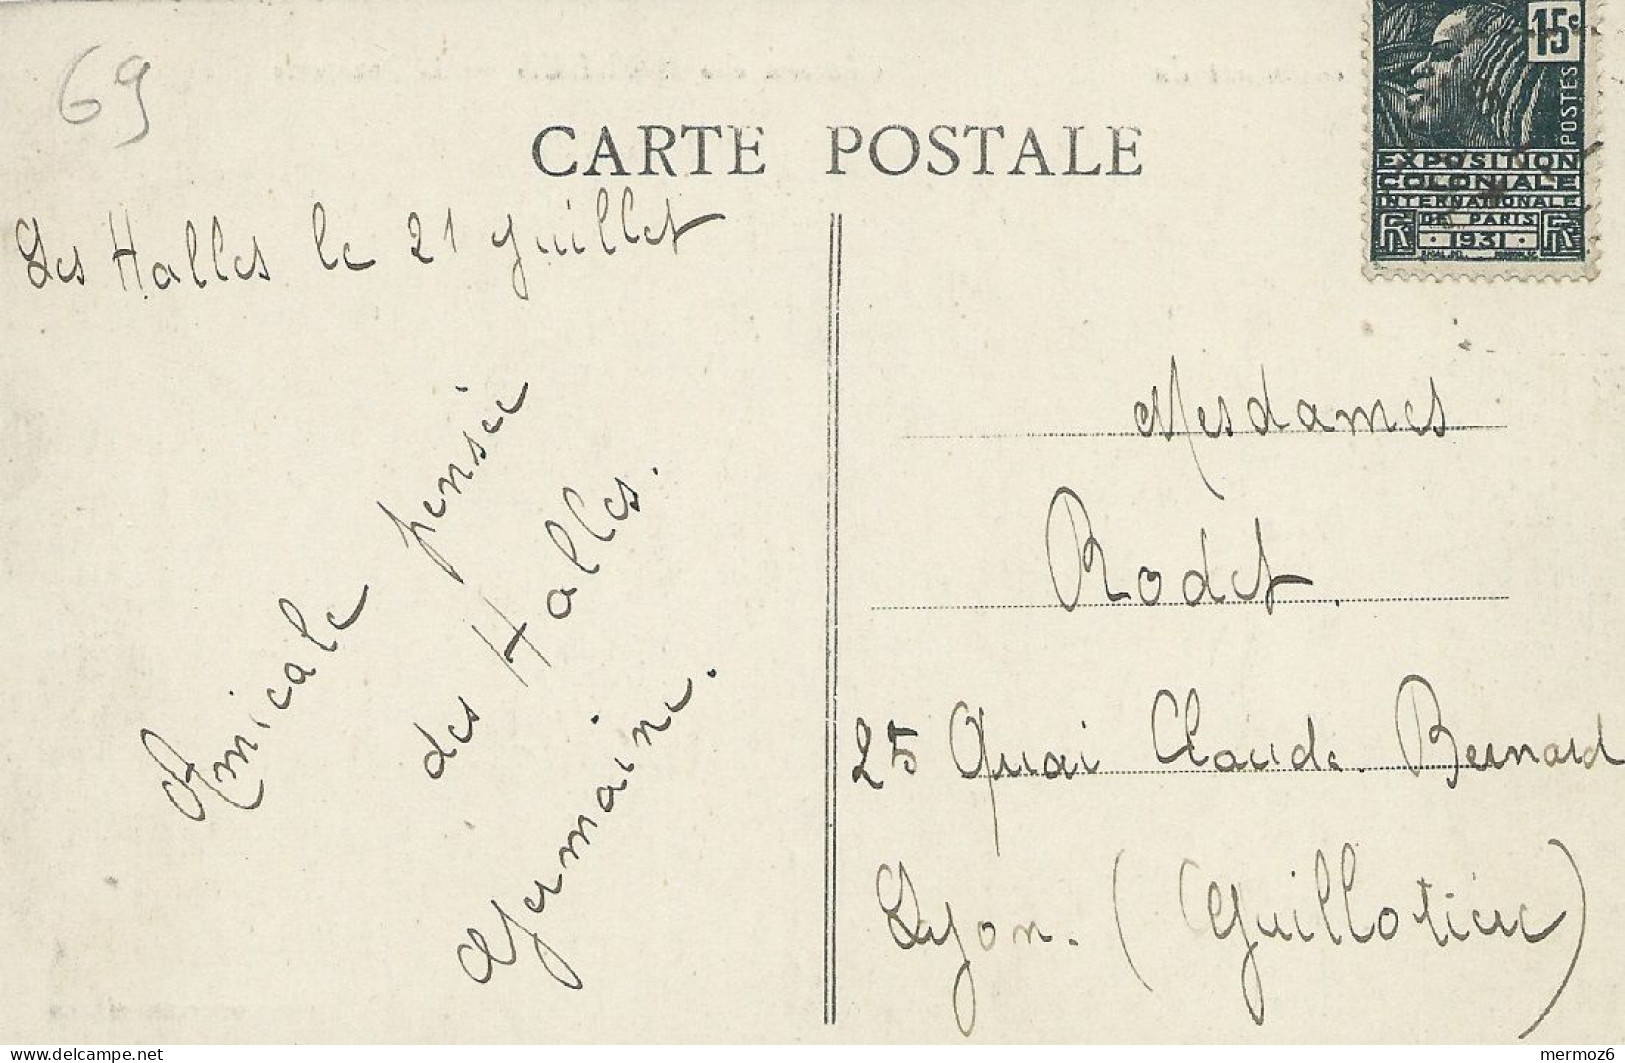 69
CARTE POSTALE
15c
POSTES
EXPOSITION
COLONIALE
INTERNATIONALE
DE PARIS
RF 1931 RF
Les Halles le 21 Juillet
Amicale pensée
des Halles.
Germaine.
Mesdames
Rodet.
25 Quai Claude Bernard
Lyon. (Guillotière)
www.delcampe.net
mermoz6